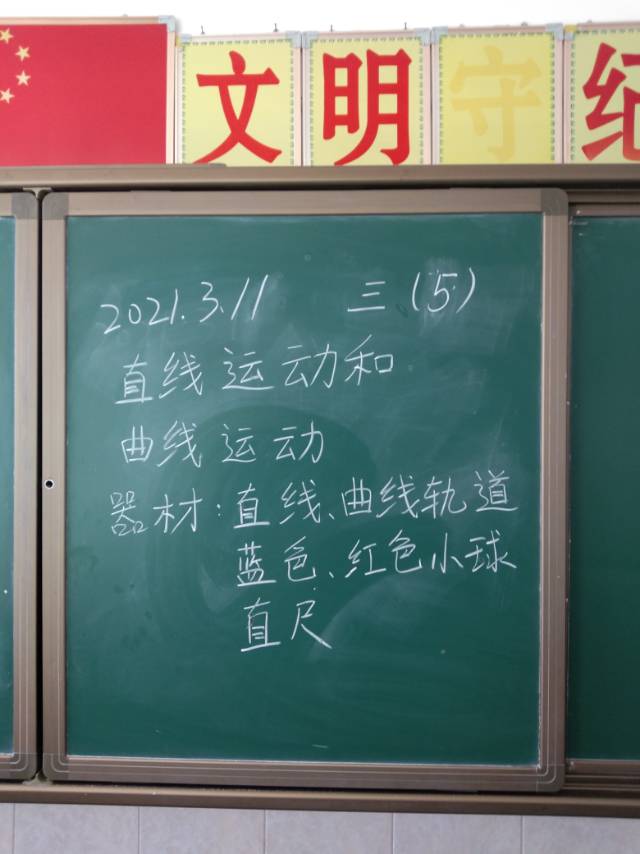 文明守纪
2021.3.11 三(5)
直线运动和
曲线运动
器材:直线、曲线轨道
蓝色、红色小球
直尺